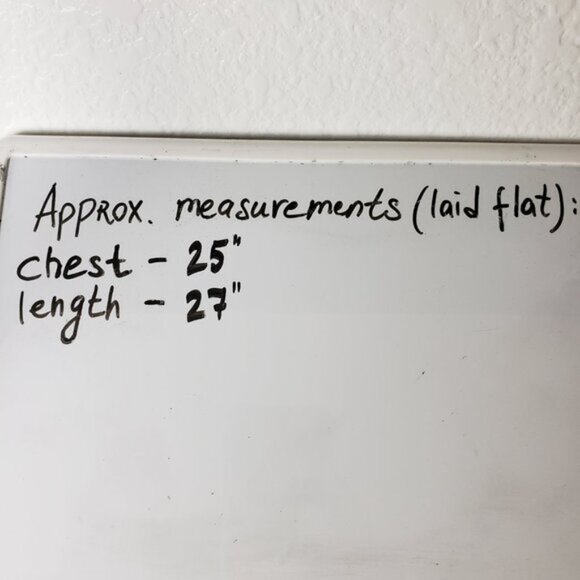 Approx. measurements (laid flat):
chest - 25"
length - 27"